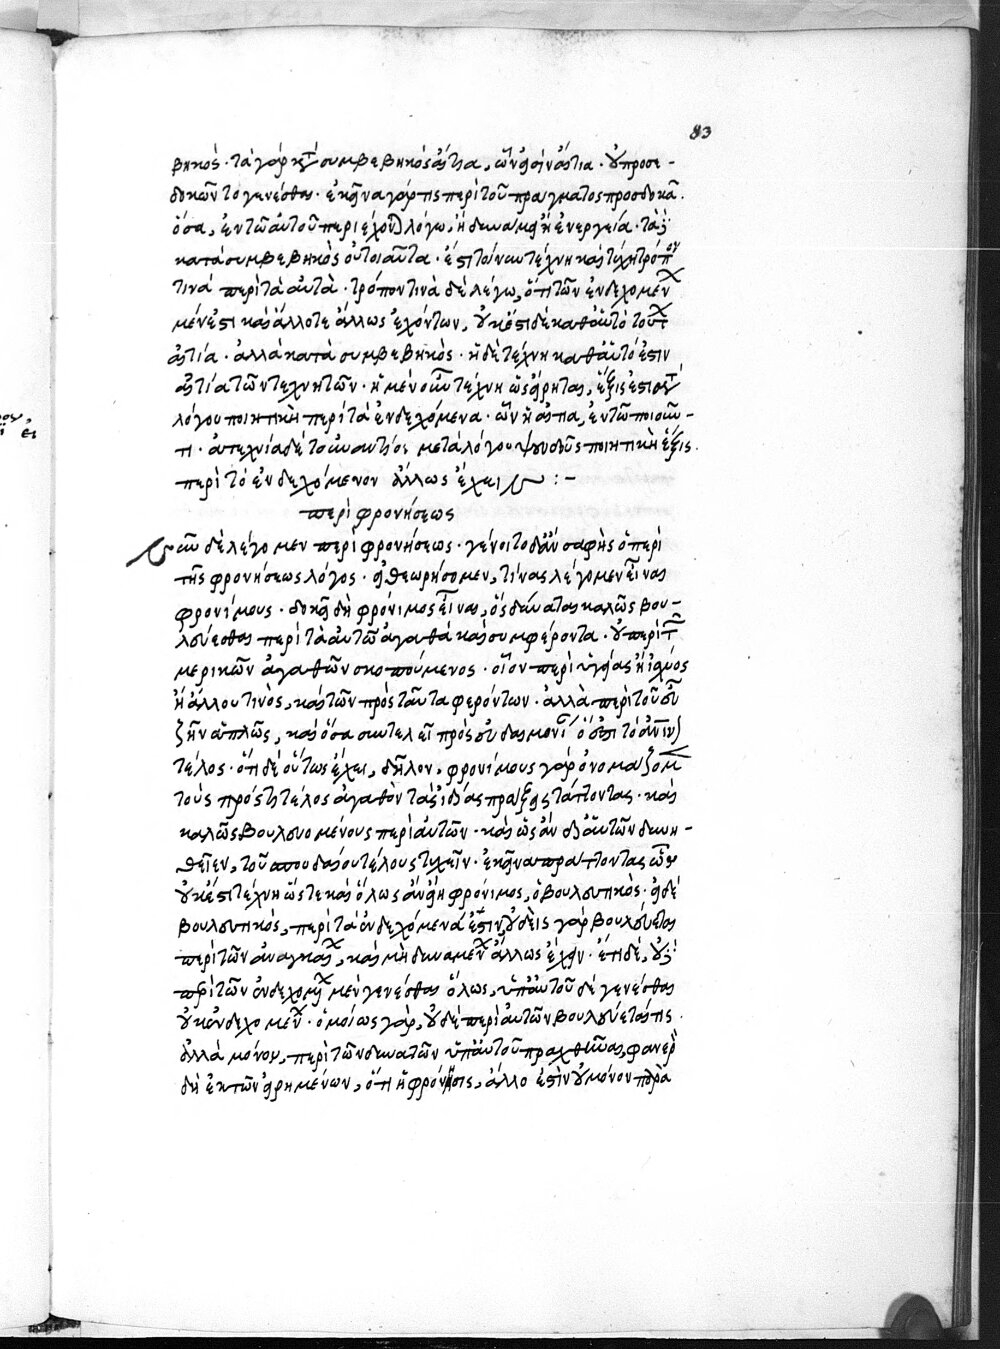 83
βηκός · τὰ γὰρ κατὰ συμβεβηκὸς αἴτια, ὧν εἰσὶν αἴτια · οὐ προσε-
δοκῶν τὸ γενέσθαι · ἐκεῖνα γάρ τις περὶ τοῦ πράγματος προσδοκᾷ.
ὅσα, ἐν τῶ αὐτοῦ περιέχονται λόγω, ἢ δυνάμει ἢ ἐνεργεία · τὰ δὲ
κατὰ συμβεβηκὸς οὐ τοιαῦτα · ἔστι τοίνυν τέχνη καὶ τύχη τρόπον
τινὰ περὶ τὰ αὐτὰ · τρόπον τινὰ δὲ λέγω, ὅτι τῶν ἐνδεχομένων
μέν ἐστι καὶ ἄλλοτε ἄλλως ἐχόντων, οὐκ ἔστι δὲ καθ' αὑτὸ τούτων
αἰτία · ἀλλὰ κατὰ συμβεβηκὸς · ἡ δὲ τέχνη καθ' αὑτό ἐστιν
αἰτία τῶν τεχνητῶν · ἡ μὲν οὖν τέχνη ὡς εἴρηται, ἕξις ἐστὶ μετὰ
λόγου ποιητικὴ περὶ τὰ ἐνδεχόμενα · ὧν ἡ αἰτία, ἐν τῶ ποιοῦν-
τι · ἀτεχνία δὲ τοὐναντίον μετὰ λόγου ψευδοῦς ποιητικὴ ἕξις.
περὶ τὸ ἐνδεχόμενον ἄλλως ἔχειν : -
περὶ φρονήσεως
νῦν δὲ λέγομεν περὶ φρονήσεως · γένοιτο δ' ἂν σαφὴς ὁ περὶ
τῆς φρονήσεως λόγος · εἰ θεωρήσομεν, τίνας λέγομεν εἶναι
φρονίμους · δοκεῖ δὴ φρόνιμος εἶναι, ὃς δύναται καλῶς βου-
λεύεσθαι περὶ τὰ αὐτῶ ἀγαθὰ καὶ συμφέροντα · οὐ περὶ τῶν
μερικῶν ἀγαθῶν σκοπούμενος · οἷον περὶ ὑγείας ἢ ἰσχύος
ἢ ἄλλου τινὸς, καὶ τῶν πρὸς ταῦτα φερόντων · ἀλλὰ περὶ τοῦ εὖ
ζῆν ἁπλῶς, καὶ ὅσα συντελεῖ πρὸς εὐδαιμονίαν ὅ ἐστι τὸ ἀνθρώπινον
τέλος · ὅτι δὲ οὕτως ἔχει, δῆλον, φρονίμους γὰρ ὀνομάζομεν
τοὺς πρός τι τέλος ἀγαθὸν τὰς ἰδίας πράξεις τάττοντας · καὶ
καλῶς βουλευομένους περὶ αὐτῶν · καὶ ὡς ἂν δι' αὐτῶν δυνη-
θεῖεν, τοῦ σπουδαίου τέλους τυχεῖν · ἐκεῖνα πράττοντας ὧν
οὐκ ἔστι τέχνη ὥστε καὶ ὅλως ἂν εἴη φρόνιμος, ὁ βουλευτικὸς · εἰ δὲ
βουλευτικὸς, περὶ τὰ ἐνδεχόμενά ἐστιν, οὐδεὶς γὰρ βουλεύεται
περὶ τῶν ἀναγκαίων, καὶ μὴ δυναμένων ἄλλως ἔχειν · ἔτι δέ, οὐδὲ
περὶ τῶν ἐνδεχομένων μὲν γενέσθαι ὅλως, ὑπ' αὐτοῦ δὲ γενέσθαι
οὐκ ἐνδεχομένων · ὁμοίως γὰρ, οὐδὲ περὶ αὐτῶν βουλεύεταί τις.
ἀλλὰ μόνον, περὶ τῶν δυνατῶν ὑπ' αὐτοῦ πραχθῆναι, φανερὸν
δὴ ἐκ τῶν εἰρημένων, ὅτι ἡ φρόνησις, ἄλλο ἐστὶν οὐ μόνον παρὰ